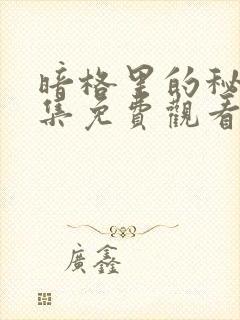 暗格里的秘
集免費觀看
廣鑫